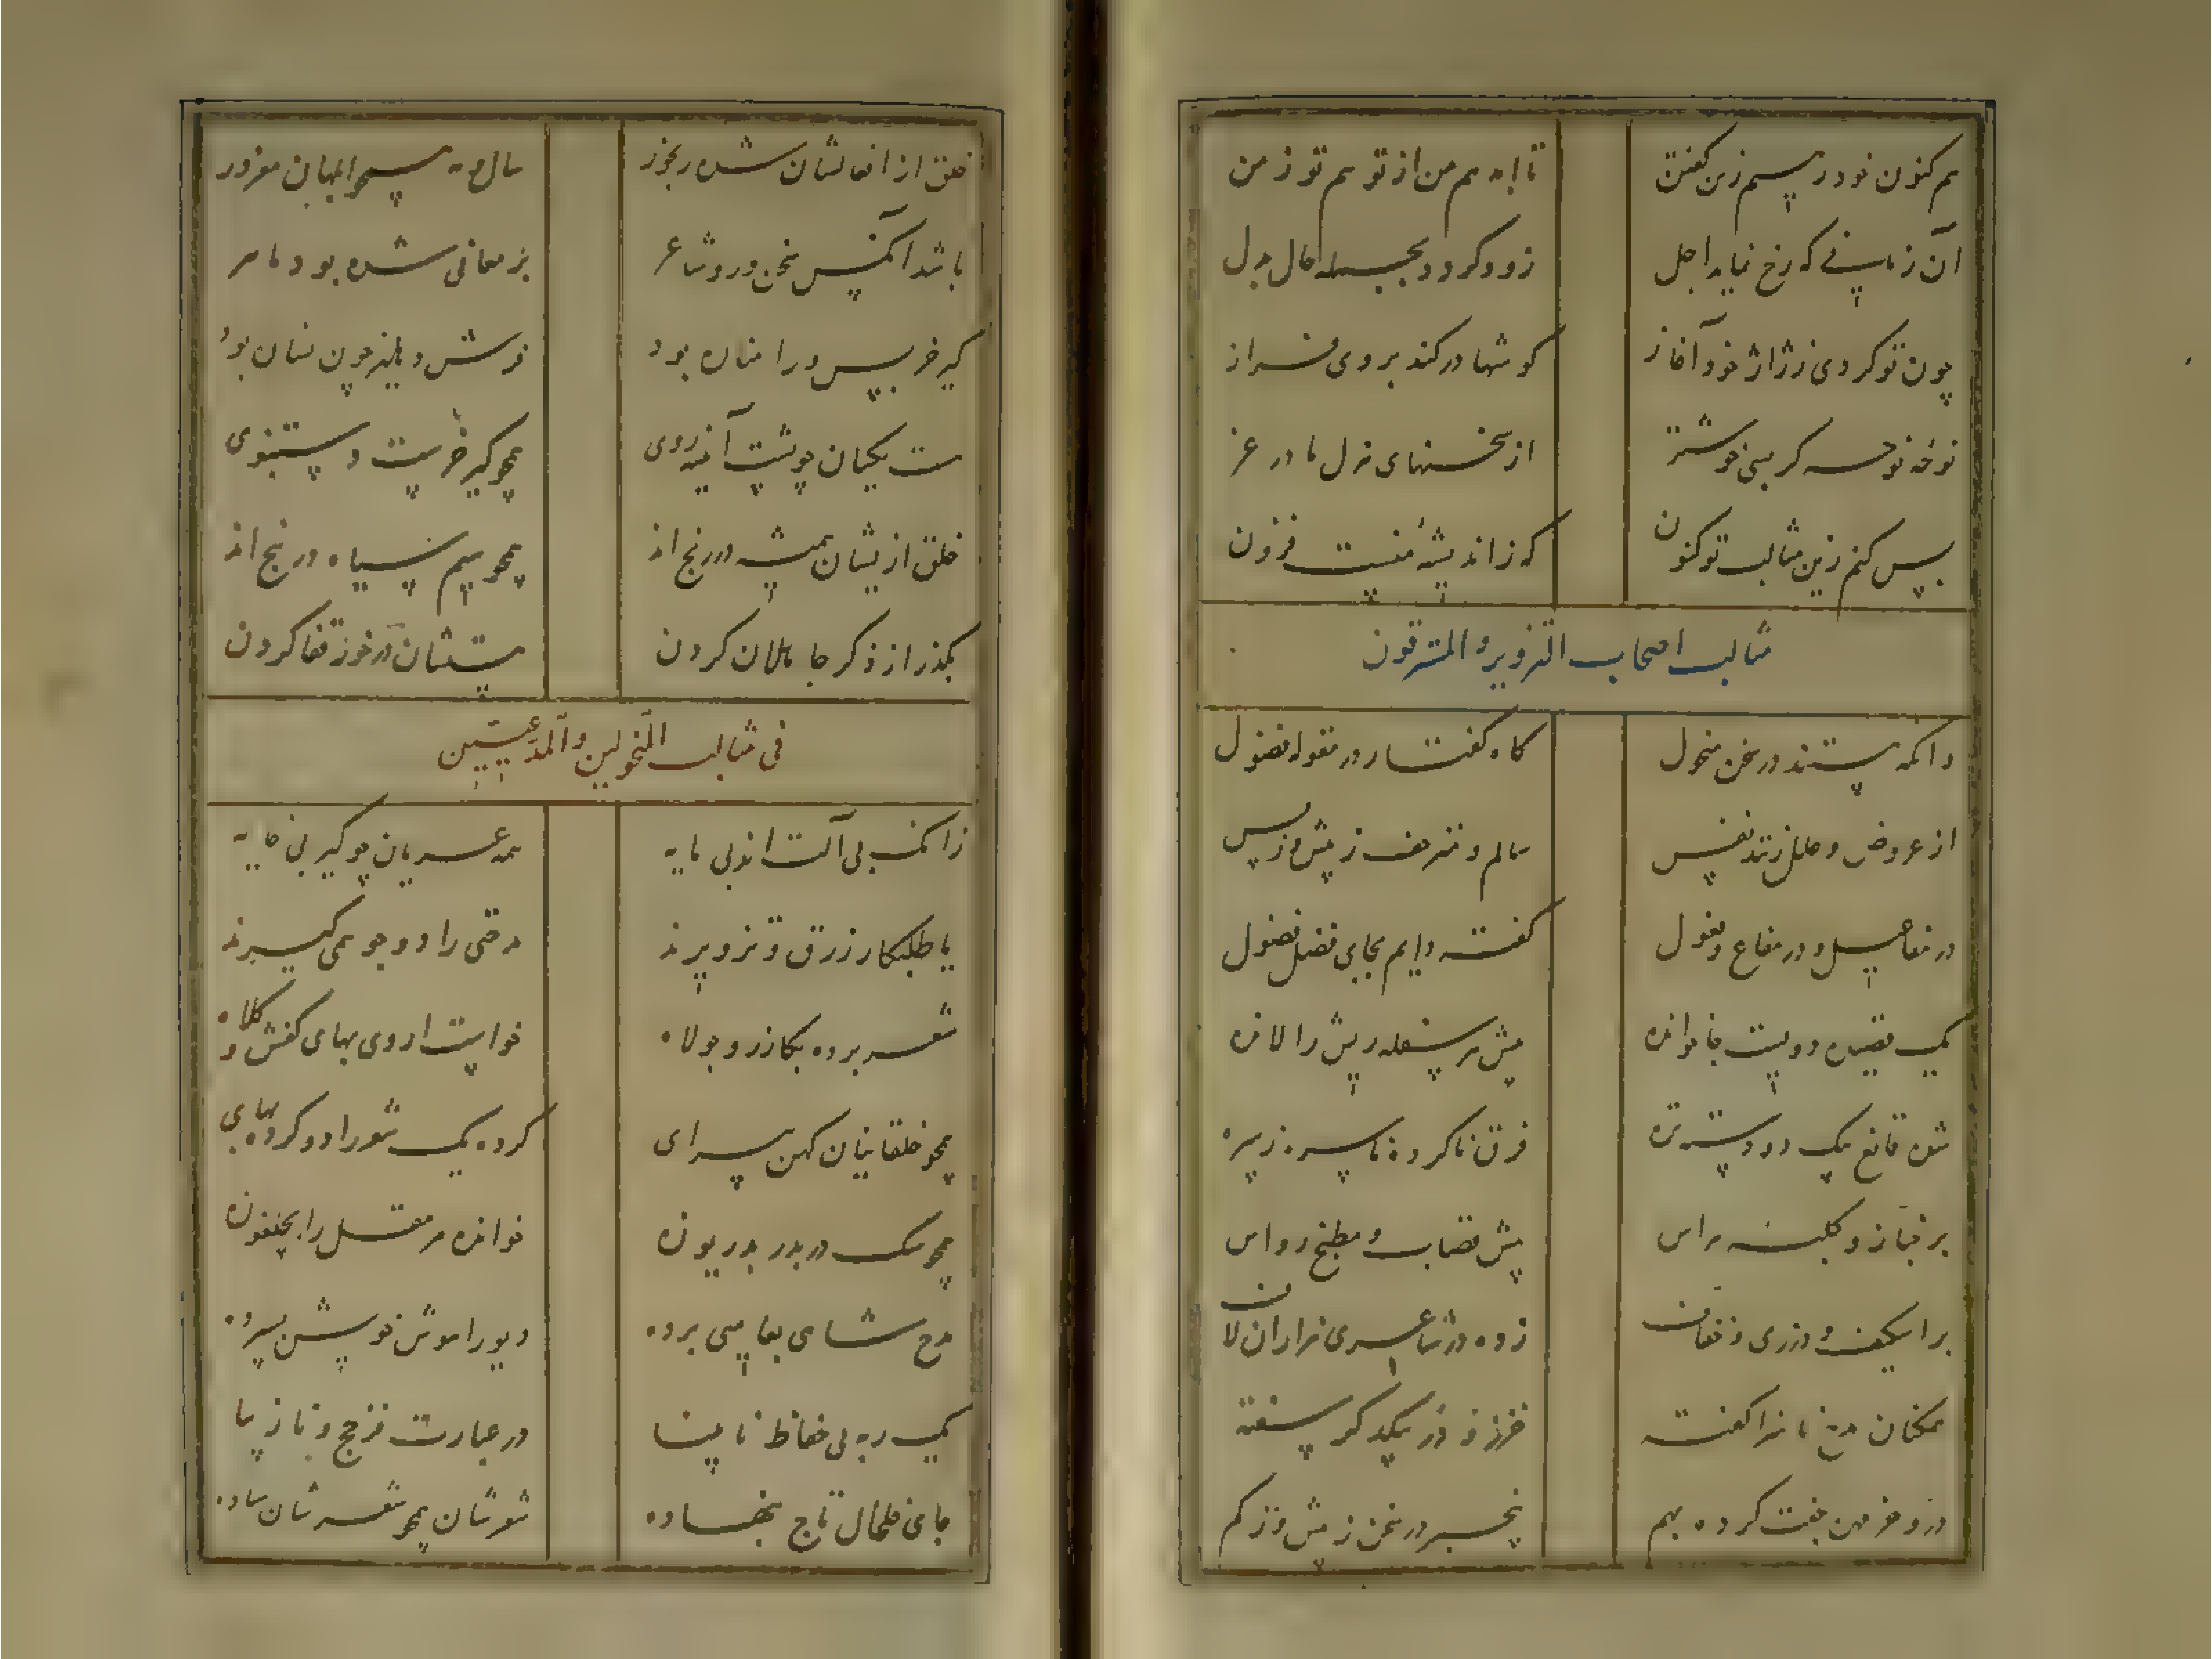 هم کنون خود رسیم زین گفتن
تا ابد هم من از تو هم تو ز من
آن زمانی که رخ نماید اجل
زود گردد بحیله حال بدل
چون تو کردی ز ژاژ خود آغاز
گوشها در کند بروی فراز
نوحهٔ نوحه گر بسی خوشتر
از سخنهای هزل مادر غر
بس کنم زین مثالب تو کنون
که ز اندیشهٔ منست فزون
مثالب اصحاب التزویر و المتسرقون
وانکه هستند در سخن منحول
گاه گفتار در مقوله فضول
از عروض و علل زنند نفس
سالم و منزحف ز پیش و ز پس
در مفاعیل و در مفاع و فعول
گفته دایم بجای فضل فضول
یک قصیده دویست جا خوانده
پیش هر سفله ریش را لانده
شده قانع بیک دو دسته تره
فرق ناکرده ناسره ز سره
بر خباز و کلبهٔ هراس
پیش قصاب و مطبخ رواس
بر اسکیف و درزی و خفاف
زده در شاعری هزاران لاف
ممکنان مدح ناسزا گفته
خرز و در بیکدگر سفته
در و خر مهره جفت کرده بهم
بیخبر در سخن ز بیش و ز کم
خلق از افعالشان شده رنجور
سال و مه همچو ابلهان مغرور
باشد آنکس سخنور و شاعر
بر معانی شده بود ماهر
کیر خر بس ورا منان بود
خوش و پالیز چون سنان بود
هست یکسان چو پشت آینه روی
همچو کیر خرست و دستنبوی
خلق ازیشان همیشه در رنج اند
همچو سیم سیاه در رنج اند
بگذر از ذکر جاهلان کردن
هستشان در خور قفا گردن
فی مثالب المنحولین والمدعیین
زانکه بی آلت اند و بی مایه
همه عریان چو کیر بی خایه
یا طلبکار زرق و تزویرند
مدحتی را دو جو همی گیرند
شعر برده بگازر و جولاه
خواسته از وی بهای کفش و کلاه
همچو خلقانیان کهن پیرای
کرده یک شعر را دو گرده بهای
همچو سگ در بدر بدریوزه
خوانده مر عقل را بخفریزه
مدح شاهی بعاصی برده
دیو را هوش خویش بسپرده
یک رمه بی حفاظ نابینا
در عبارت فزج و نازیبا
جای خلخال تاج بنهاده
شورشان همچو شعرشان ساده